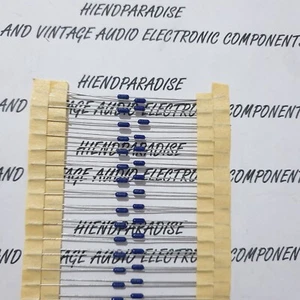 HIENDPARADISE
AND VINTAGE AUDIO ELECTRONIC COMPONENTS
HIENDPARADISE
AND TAGE AUDIO ELECTRO COMPONENT
HIENDPARADISE
AND TAGE AUDIO ELECTRO COMPONENT
HIENDPARADISE
AND TAGE AUDIO ELECTRO COMPONENT